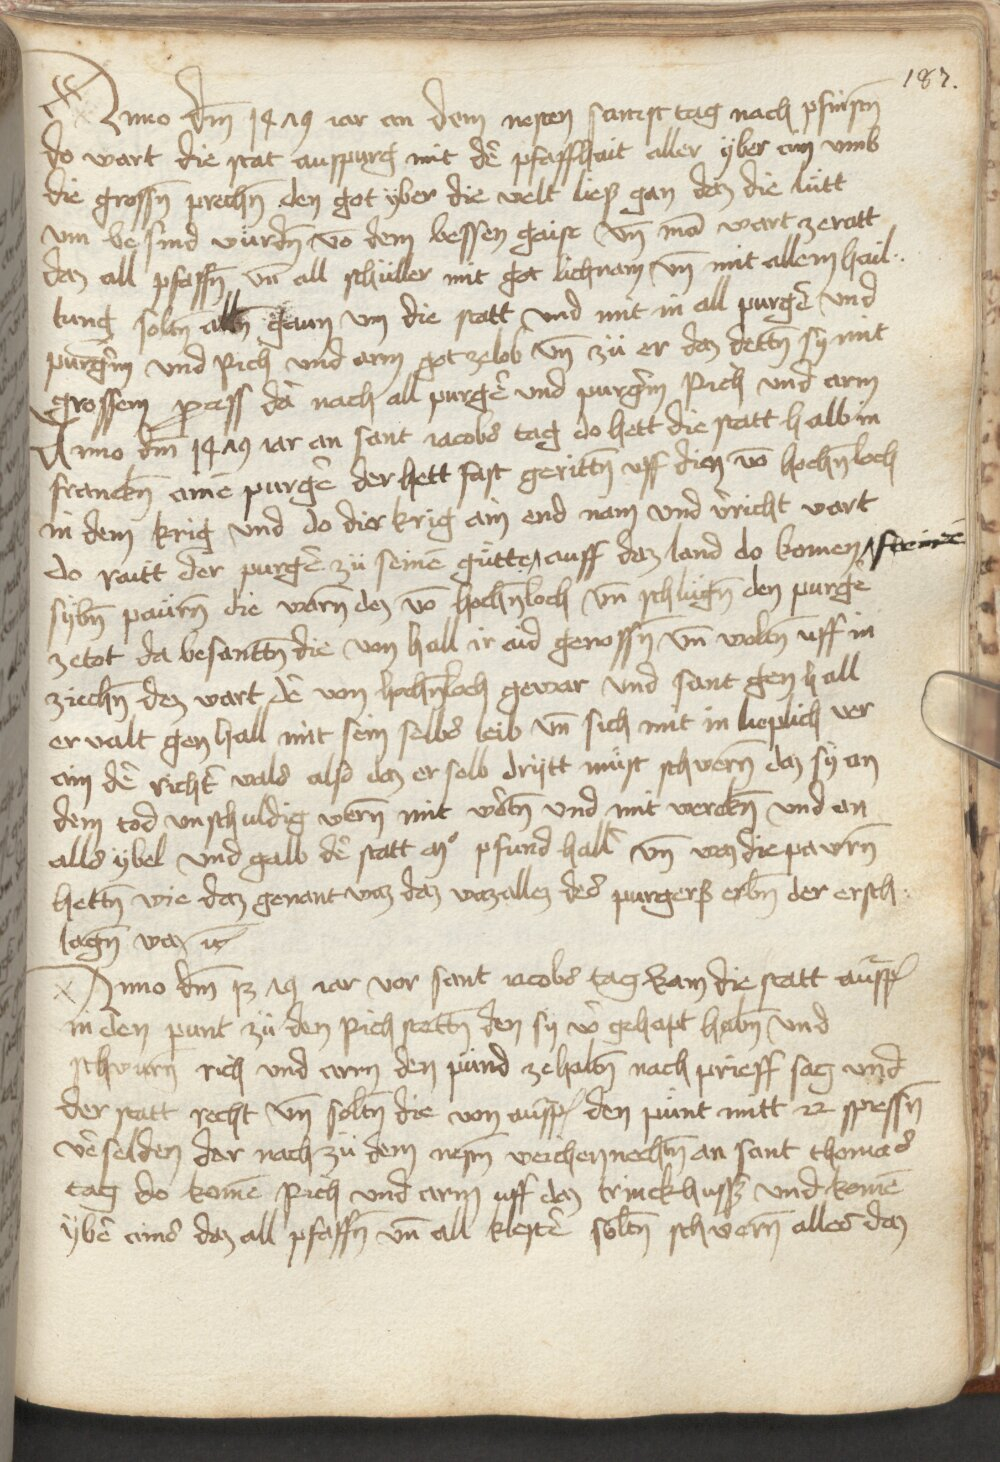 187.
Anno dm̄ 1479 iar an dem nesten samstag nach pfinstn̄
do wart die stat auspurg mit dē pfaffhait aller yber ain vmb
die grossn̄ prechn̄ den got yber die welt ließ gan daz die lütt
vm be sind würdn̄ vō dem bessen gaist vn̄ mā wart zeratt
daz all pfaffn̄ vn̄ all schüller mit got lichnam vn̄ mit allem hail
tung soltn̄ gaun vm die statt vnd mit in all purgē vnd
purgrīn vnd Rich vnd arm got zelob vn̄ zü er daz dettn̄ sy mit
grossem dā nach all purgē vnd purgrīn Rich vnd arm
Anno dm̄ 1479 iar an sant iacobs tag do hett die statt hall in
franckn̄ ainē purgē der hett fast gerittn̄ vff dien vō hochn̄loch
in dem krig vnd do dier krig ain end nam vnd v̄richt wart
do raitt der purgē zü seinē gütte auff daz land do komen
sybn̄ paürn̄ die warn̄ dez vō hochn̄loch vn̄ schlügn̄ den purgē
zetot da besanttn̄ die von hall ir aid genossn̄ vn̄ woltn̄ vff in
ziechn̄ dez wart dē von hochn̄loch gewar vnd sant gen hall
er walt gen hall mit sein selbs leib vn̄ sich mit in lieplich ver
ain dē richtē vals also daz er selb drytt müst schwern̄ daz sy an
dem tod vnschuldig wern̄ mit wortn̄ vnd mit werckn̄ vnd an
alls ybel vnd gab dē statt pfund hallr vn̄ waz die paurn̄
hettn̄ wie daz genant waz daz waz allez des purgerß erbn̄ der ersch
lagn̄ waz
Anno dm̄ 1379 iar vor sant iacobs tag kam die statt
in den punt zü den Rich stettn̄ den sy vō gehapt habn̄ vnd
schwurn̄ rich vnd arm den pünd zehabn̄ nach prieff sag vnd
der statt recht vn̄ soltn̄ die von den pünt mitt 22 spressn̄
vēselden dar nach zü dem nestn̄ weichennechtn̄ an sant thomas
tag do komē Rich vnd arm uff daz trinckhusß vnd komē
ybē ains daz all pfaffn̄ vn̄ all klestē soltn̄ schwern̄ alles daz